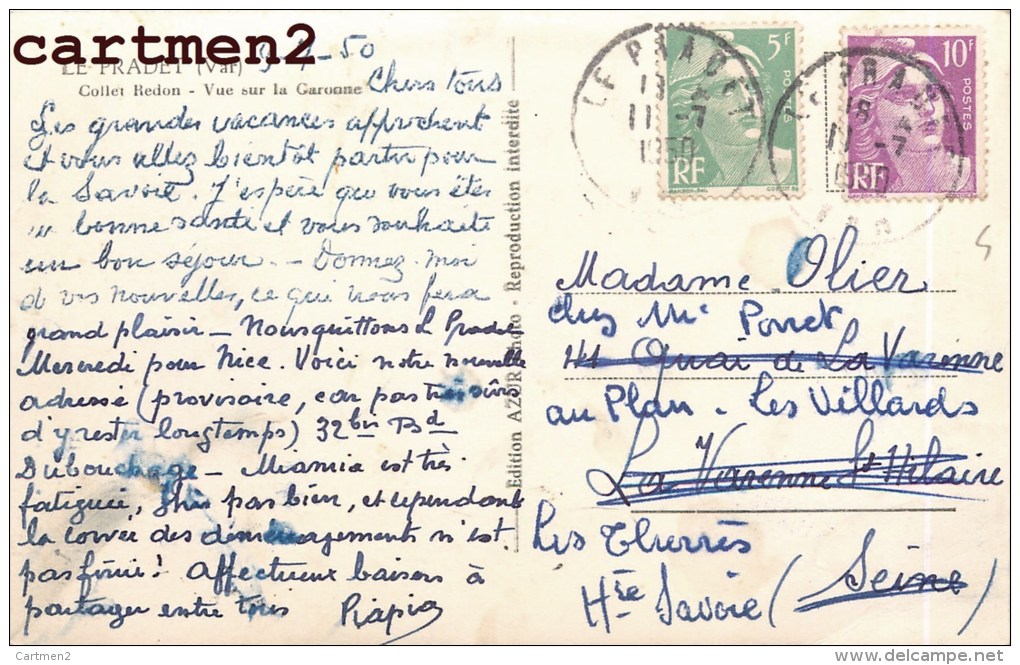 cartmen2
LE PRADET (Var) 9-7-50
Collet Redon - Vue sur la Garonne
Chers tous
Les grandes vacances approchent
et vous allez bientôt partir pour
la Savoie. J'espère que vous êtes
en bonne santé et vous souhaite
un bon séjour. - Donnez-moi
d vos nouvelles, ce qui nous fera
grand plaisir - Nous quittons Le Pradet
Mercredi pour Nice. Voici notre nouvelle
adresse (provisoire, car pas très sûre
d'y rester longtemps) 32 bis Bd
Dubouchage - Miamia est très
fatiguée, pas bien, et cependant
la corvée des déménagements n'est
pas finie! Affectueux baisers à
partager entre tous
Edition AZUR Photo - Reproduction interdite
LE PRADET
18
11 -7
1950
LE PRADET
18
11 -7
1950
VAR
5F
POSTES
RF
10F
POSTES
RF
Madame Olier
chez Mr Porret
41 Quai de La Varenne
au Plan - Les Villards
La Varenne St Hilaire
Les Thernes
Hte Savoie (Seine)
Cartmen2
www.delcampe.net